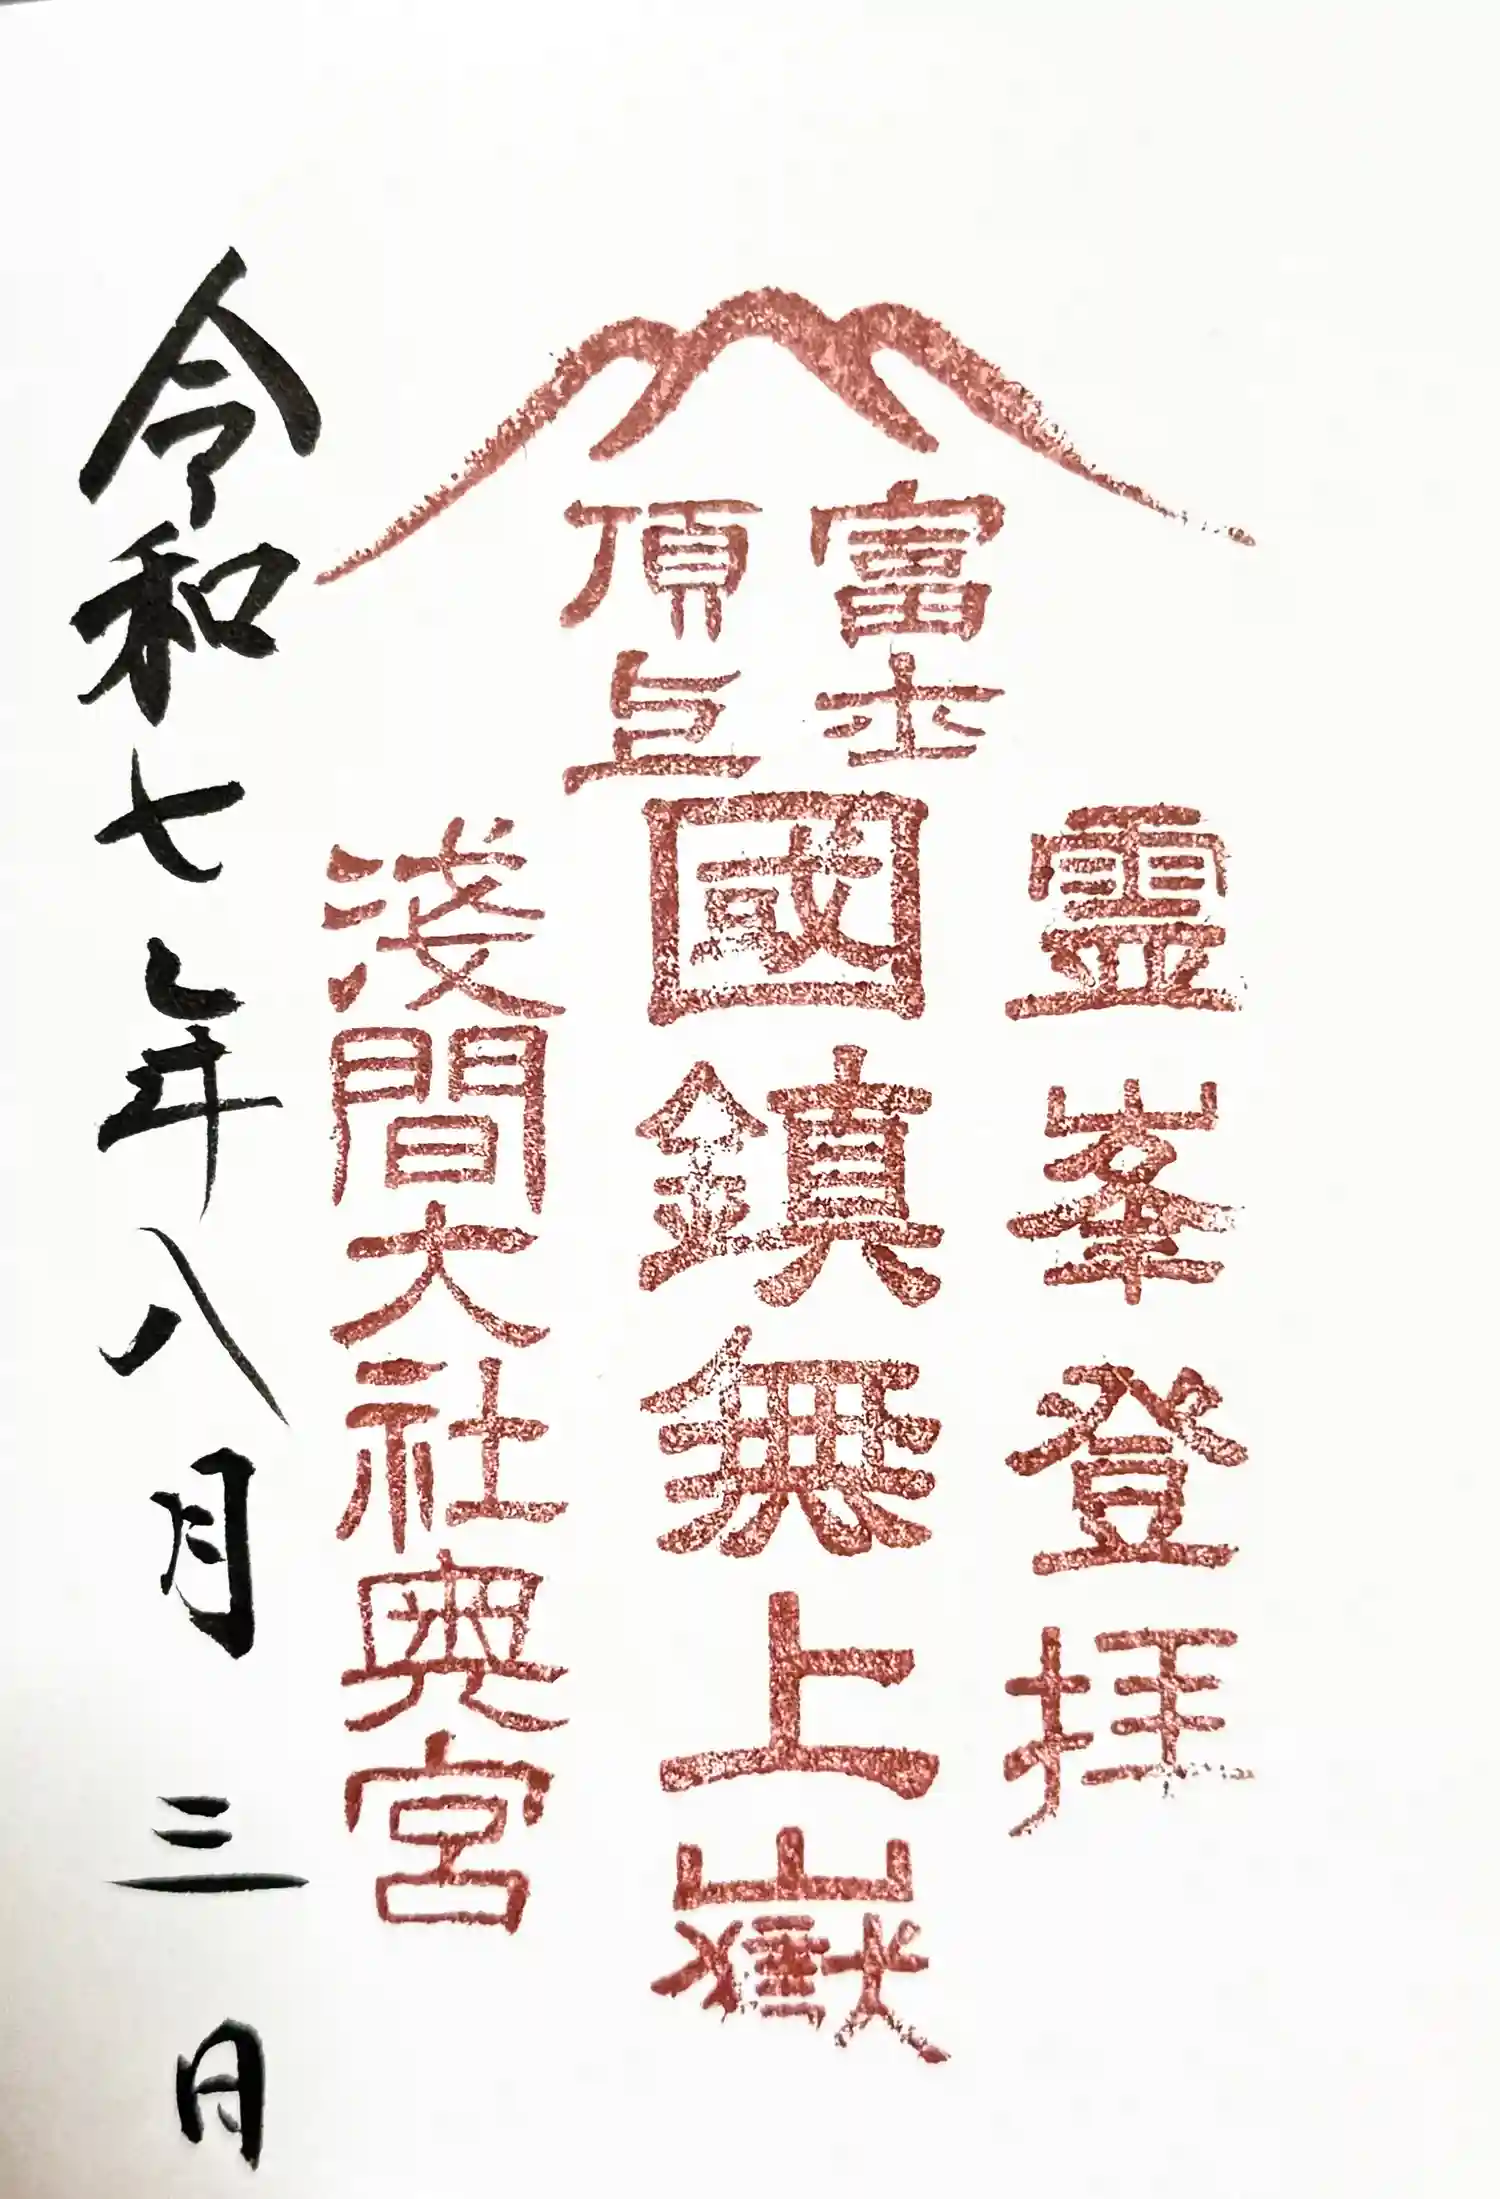 富士
頂上
霊峯登拝
國鎮無上嶽
浅間大社奥宮
令和七年八月三日